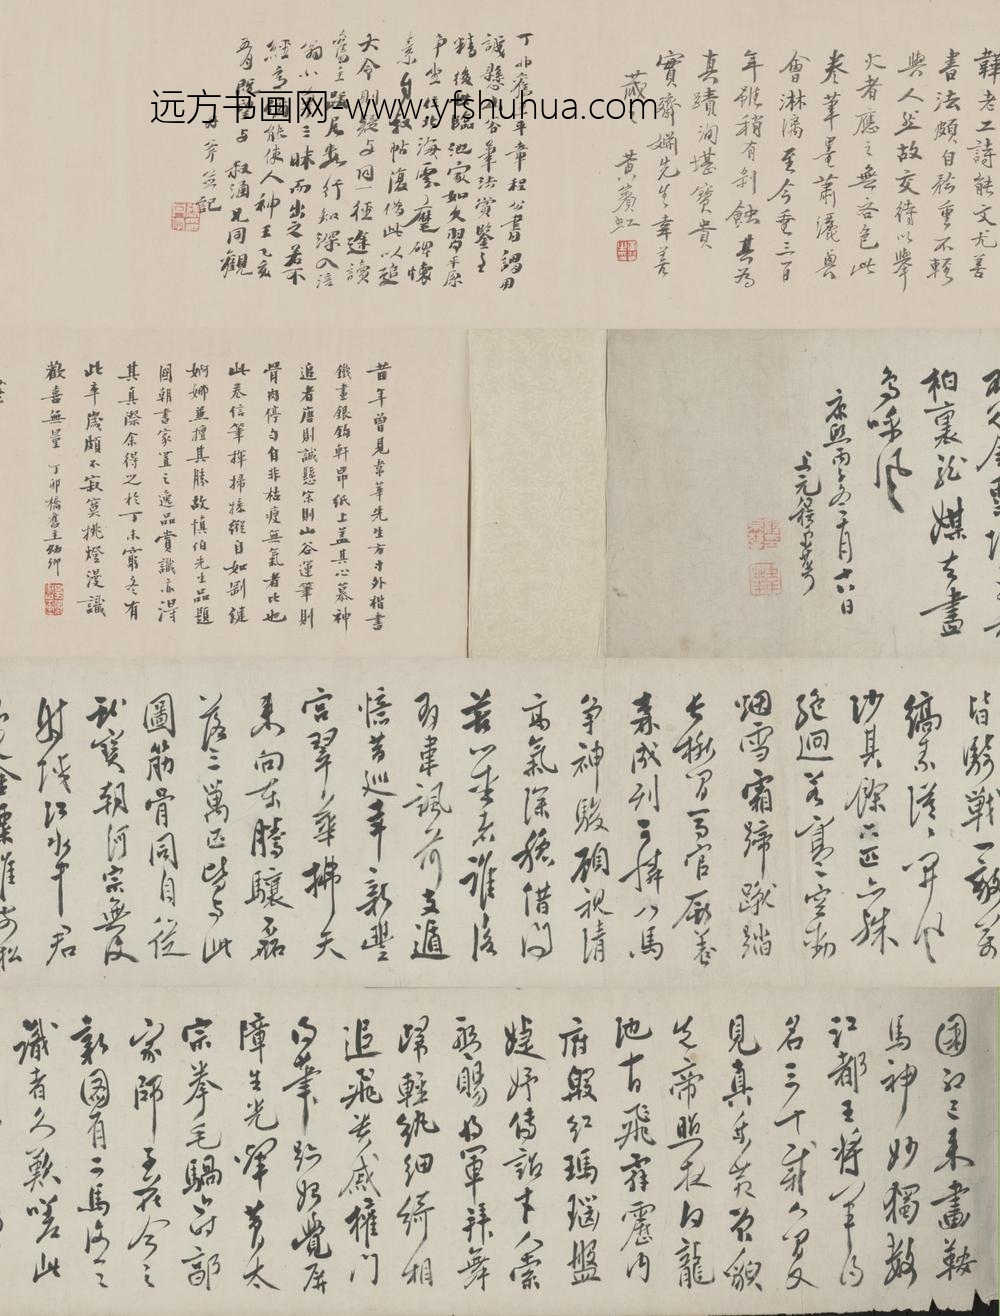 韡老工詩能文尤善
書法頗自矜重不輕
與人然故交待以舉
火者應之無吝色此
卷筆墨蕭灑興
會淋漓至今垂三百
年雖稍有剝蝕其為
真蹟洵堪寶貴
實齋先生幸善
藏之 黃賓虹
章程公書謂用
誠懸筆法賞鑒
精後學臨池家如久習平原
麾碑懷
素自敘帖復借此以追
大令則殊與同一徑途讀
舊主題尾數行知深入
三昧而出之若不
經意能使人神王乙亥
既望與叔涵兄同觀
并記
柏裏龍媒去盡
鳥呼風
康熙丙子冬十月十六日
上元程京萼
昔年曾見韋華先生方寸外楷書
鐵畫銀鉤軒昂紙上蓋其心慕神
追者唐則誠懸宗則山谷運筆則
骨肉停勻自非枯瘦無氣者比也
此卷信筆揮掃操縱自如剛健
婀娜兼擅其勝故慎伯先生品題
國朝書家置之逸品賞識亦得
其真際余得之於丁未窮冬有
此卒歲頗不寂寞挑燈漫識
歡喜無量 丁卯橋舊主幼卿
皆騎戰一敵萬
縞素漠漠開風
沙其餘七匹亦殊
絕迥若寒空動
烟雪霜蹄蹴踏
長楸間馬官廝養
森成列可憐八馬
爭神駿顧視清
高氣深穩借問
苦心愛者誰後
有韋諷前支遁
憶昔巡幸新豐
宮翠華拂天
來向東騰驤磊
落三萬匹皆與此
圖筋骨同自從
獻寶朝河宗無復
射蛟江水中君
國初已來畫鞍
馬神妙獨數
江都王將軍得
名三十載人間又
見真乘黃曾貌
先帝照夜白龍
池十日飛霹靂內
府殷紅瑪瑙盤
婕妤傳詔才人索
盤賜將軍拜舞
歸輕紈細綺相
追飛貴戚權門
得筆跡始覺屏
障生光輝昔日太
宗拳毛騧近時郭
家師子花今之
新圖有二馬復令
識者久歎嗟此
远方书画网-www.yfshuhua.com